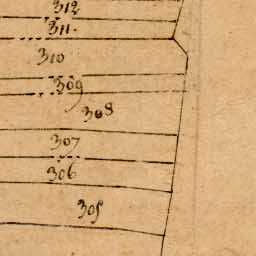 312
311.
310
309
308
307
306
305